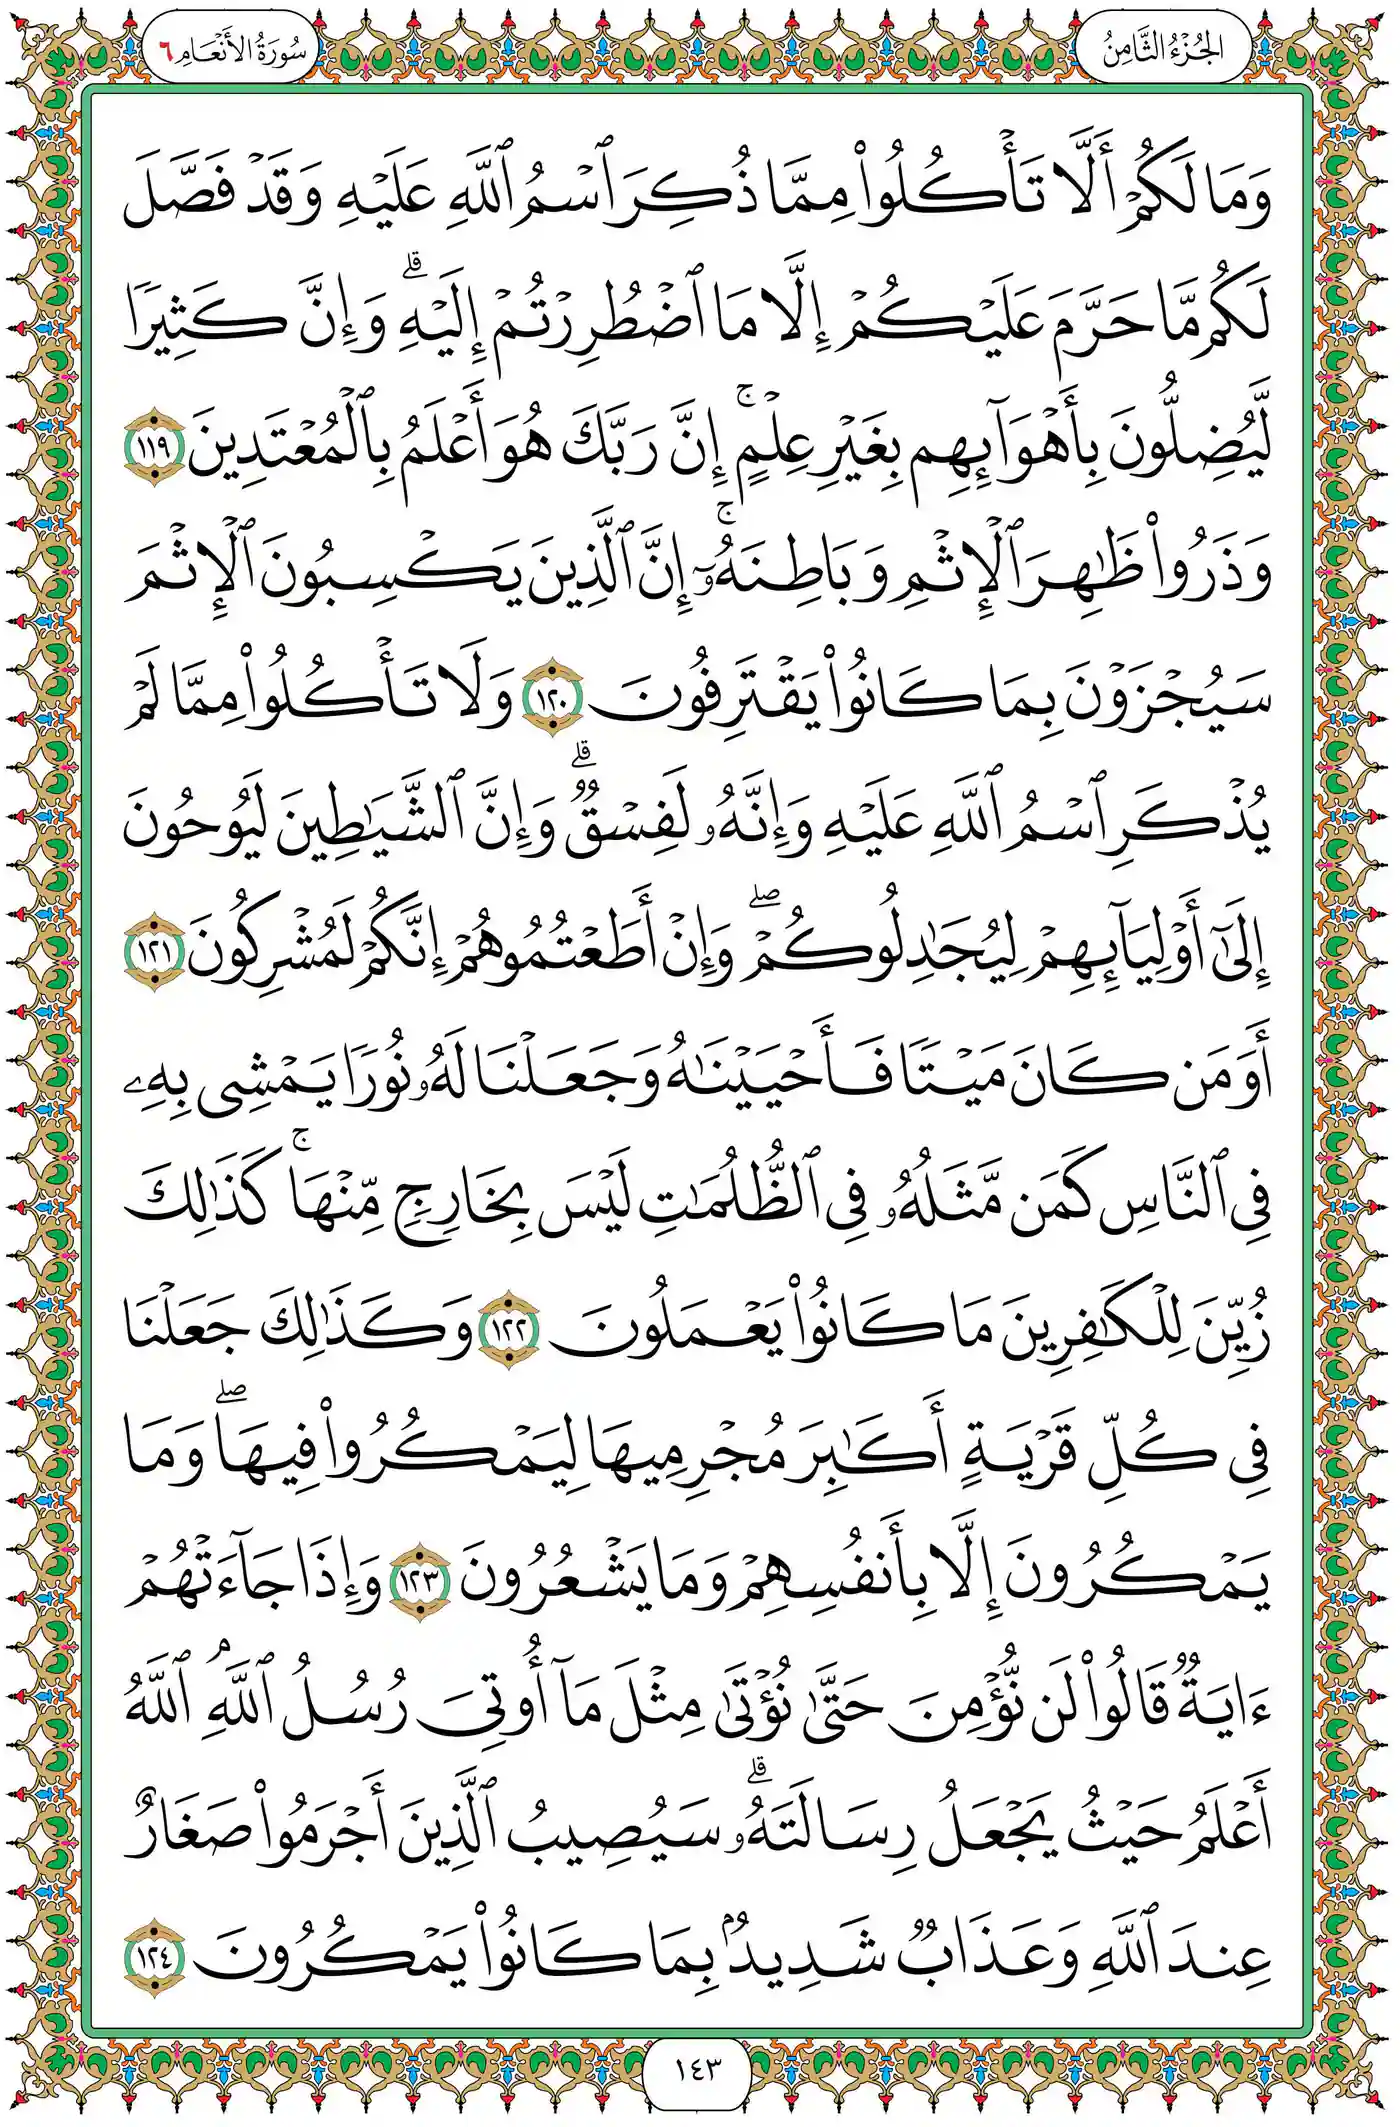 الجُزْءُ الثَّامِنُ
سُورَةُ الأَنْعَامِ ٦
وَمَا لَكُمْ أَلَّا تَأْكُلُوا۟ مِمَّا ذُكِرَ ٱسْمُ ٱللَّهِ عَلَيْهِ وَقَدْ فَصَّلَ
لَكُم مَّا حَرَّمَ عَلَيْكُمْ إِلَّا مَا ٱضْطُرِرْتُمْ إِلَيْهِ ۗ وَإِنَّ كَثِيرًا
لَّيُضِلُّونَ بِأَهْوَآئِهِم بِغَيْرِ عِلْمٍ ۚ إِنَّ رَبَّكَ هُوَ أَعْلَمُ بِٱلْمُعْتَدِينَ ١١٩
وَذَرُوا۟ ظَٰهِرَ ٱلْإِثْمِ وَبَاطِنَهُۥٓ ۚ إِنَّ ٱلَّذِينَ يَكْسِبُونَ ٱلْإِثْمَ
سَيُجْزَوْنَ بِمَا كَانُوا۟ يَقْتَرِفُونَ ١٢٠ وَلَا تَأْكُلُوا۟ مِمَّا لَمْ
يُذْكَرِ ٱسْمُ ٱللَّهِ عَلَيْهِ وَإِنَّهُۥ لَفِسْقٌ ۗ وَإِنَّ ٱلشَّيَٰطِينَ لَيُوحُونَ
إِلَىٰٓ أَوْلِيَآئِهِمْ لِيُجَٰدِلُوكُمْ ۖ وَإِنْ أَطَعْتُمُوهُمْ إِنَّكُمْ لَمُشْرِكُونَ ١٢١
أَوَمَن كَانَ مَيْتًا فَأَحْيَيْنَٰهُ وَجَعَلْنَا لَهُۥ نُورًا يَمْشِى بِهِۦ
فِى ٱلنَّاسِ كَمَن مَّثَلُهُۥ فِى ٱلظُّلُمَٰتِ لَيْسَ بِخَارِجٍ مِّنْهَا ۚ كَذَٰلِكَ
زُيِّنَ لِلْكَٰفِرِينَ مَا كَانُوا۟ يَعْمَلُونَ ١٢٢ وَكَذَٰلِكَ جَعَلْنَا
فِى كُلِّ قَرْيَةٍ أَكَٰبِرَ مُجْرِمِيهَا لِيَمْكُرُوا۟ فِيهَا ۖ وَمَا
يَمْكُرُونَ إِلَّا بِأَنفُسِهِمْ وَمَا يَشْعُرُونَ ١٢٣ وَإِذَا جَآءَتْهُمْ
ءَايَةٌ قَالُوا۟ لَن نُّؤْمِنَ حَتَّىٰ نُؤْتَىٰ مِثْلَ مَآ أُوتِىَ رُسُلُ ٱللَّهِ ۘ ٱللَّهُ
أَعْلَمُ حَيْثُ يَجْعَلُ رِسَالَتَهُۥ ۗ سَيُصِيبُ ٱلَّذِينَ أَجْرَمُوا۟ صَغَارٌ
عِندَ ٱللَّهِ وَعَذَابٌ شَدِيدٌۢ بِمَا كَانُوا۟ يَمْكُرُونَ ١٢٤
١٤٣